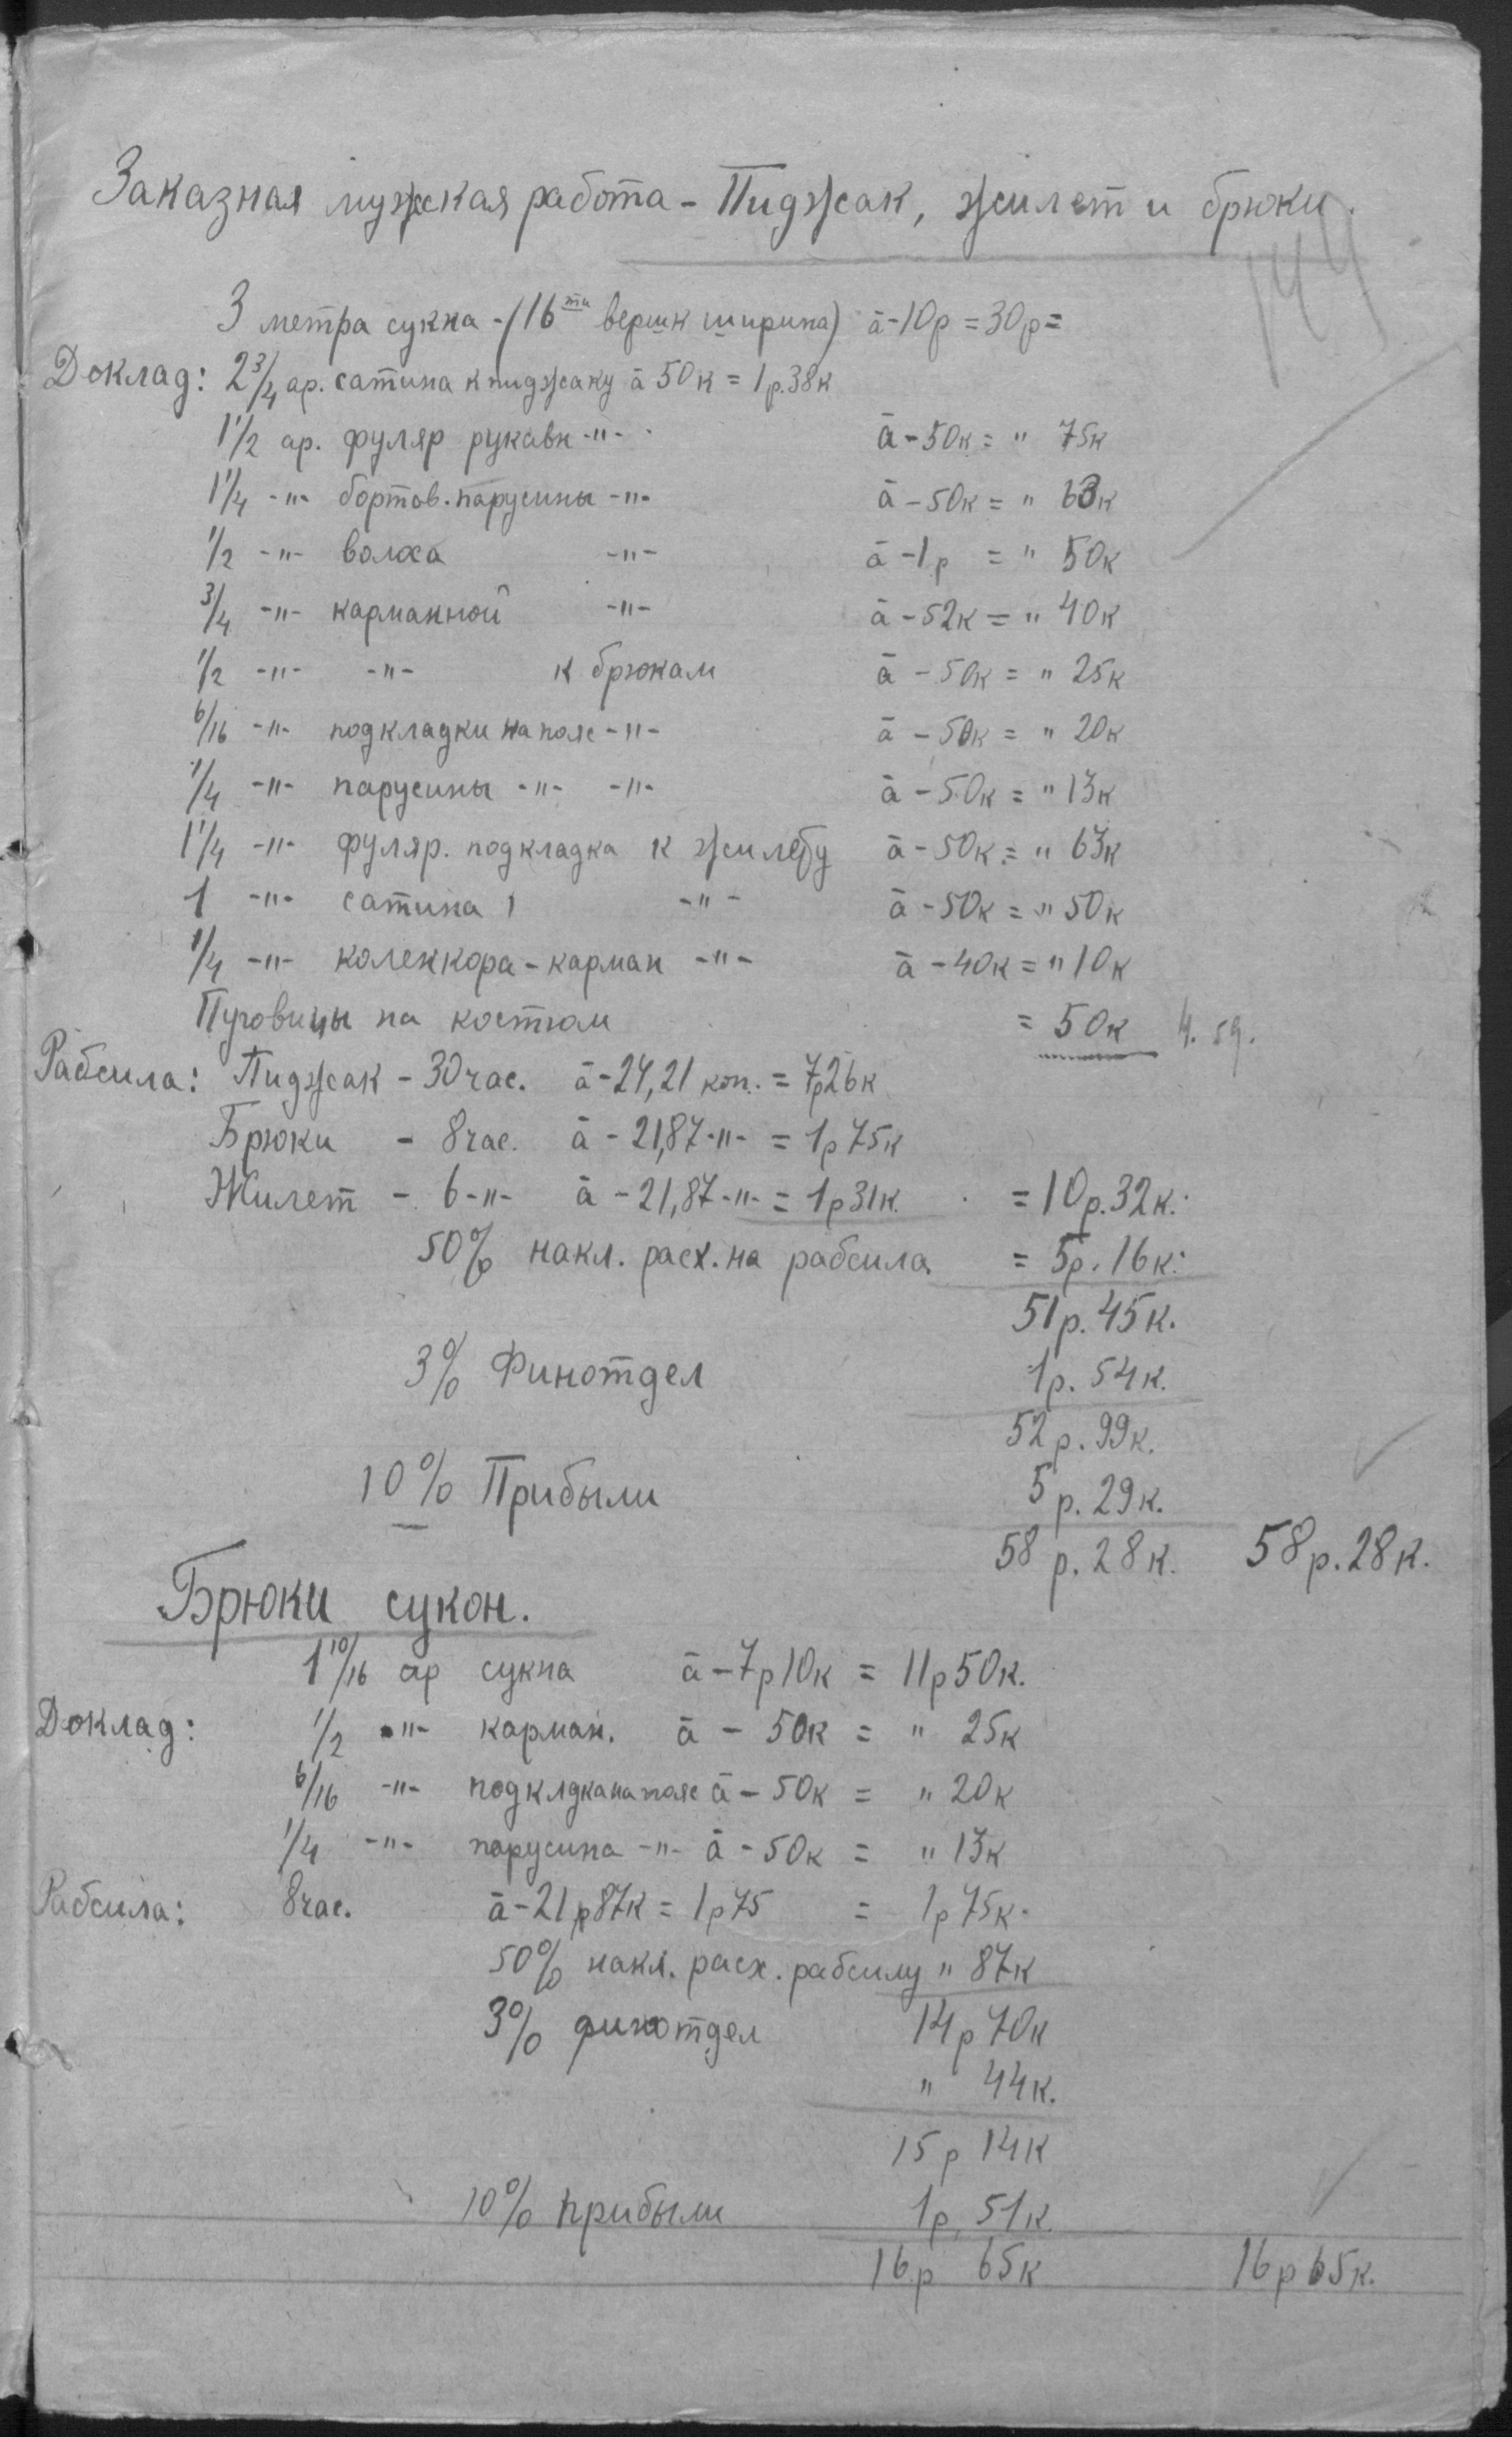 Заказная мужская работа - Пиджак, жилет и брюки.
144
3 метра сукна - (16ти вершк ширина) à - 10р = 30р =
Доклад: 2 3/4 ар. сатина к пиджаку à 50к = 1р.38к
1 1/2 ар. фуляр рукавн -"- à - 50к = " 75к
1 1/4 -"- бортов. парусины -"- à - 50к = " 63к
1/2 -"- волоса -"- à - 1р = " 50к
3/4 -"- карманной -"- à - 52к = " 40к
1/2 -"- -"- к брюкам à - 50к = " 25к
6/16 -"- подкладки на пояс -"- à - 50к = " 20к
1/4 -"- парусины -"- -"- à - 50к = " 13к
1 1/4 -"- фуляр. подкладка к жилету à - 50к = " 63к
1 -"- сатина -"- à - 50к = " 50к
1/4 -"- коленкора - карман -"- à - 40к = " 10к
Пуговицы на костюм = 50к
Рабсила: Пиджак - 30 час. à - 24,21 коп. = 7р26к
Брюки - 8 час. à - 21,87 -"- = 1р75к
Жилет - 6 -"- à - 21,87 -"- = 1р31к. = 10р.32к.
50% накл. расх. на рабсила = 5р.16к.
51р.45к.
3% Финотдел 1р.54к.
52р.99к.
10% Прибыли 5р.29к.
58р.28к. 58р.28к.
Брюки сукон.
1 10/16 ар сукна à - 7р10к = 11р50к.
Доклад: 1/2 -"- карман. à - 50к = " 25к
6/16 -"- подклдка на пояс à - 50к = " 20к
1/4 -"- парусина -"- à - 50к = " 13к
Рабсила: 8 час. à - 21р87к = 1р75 = 1р75к.
50% накл. расх. рабсилу " 87к
3% финотдел 14р70к
" 44к.
15р14к
10% прибыли 1р.51к.
16р65к 16р65к.